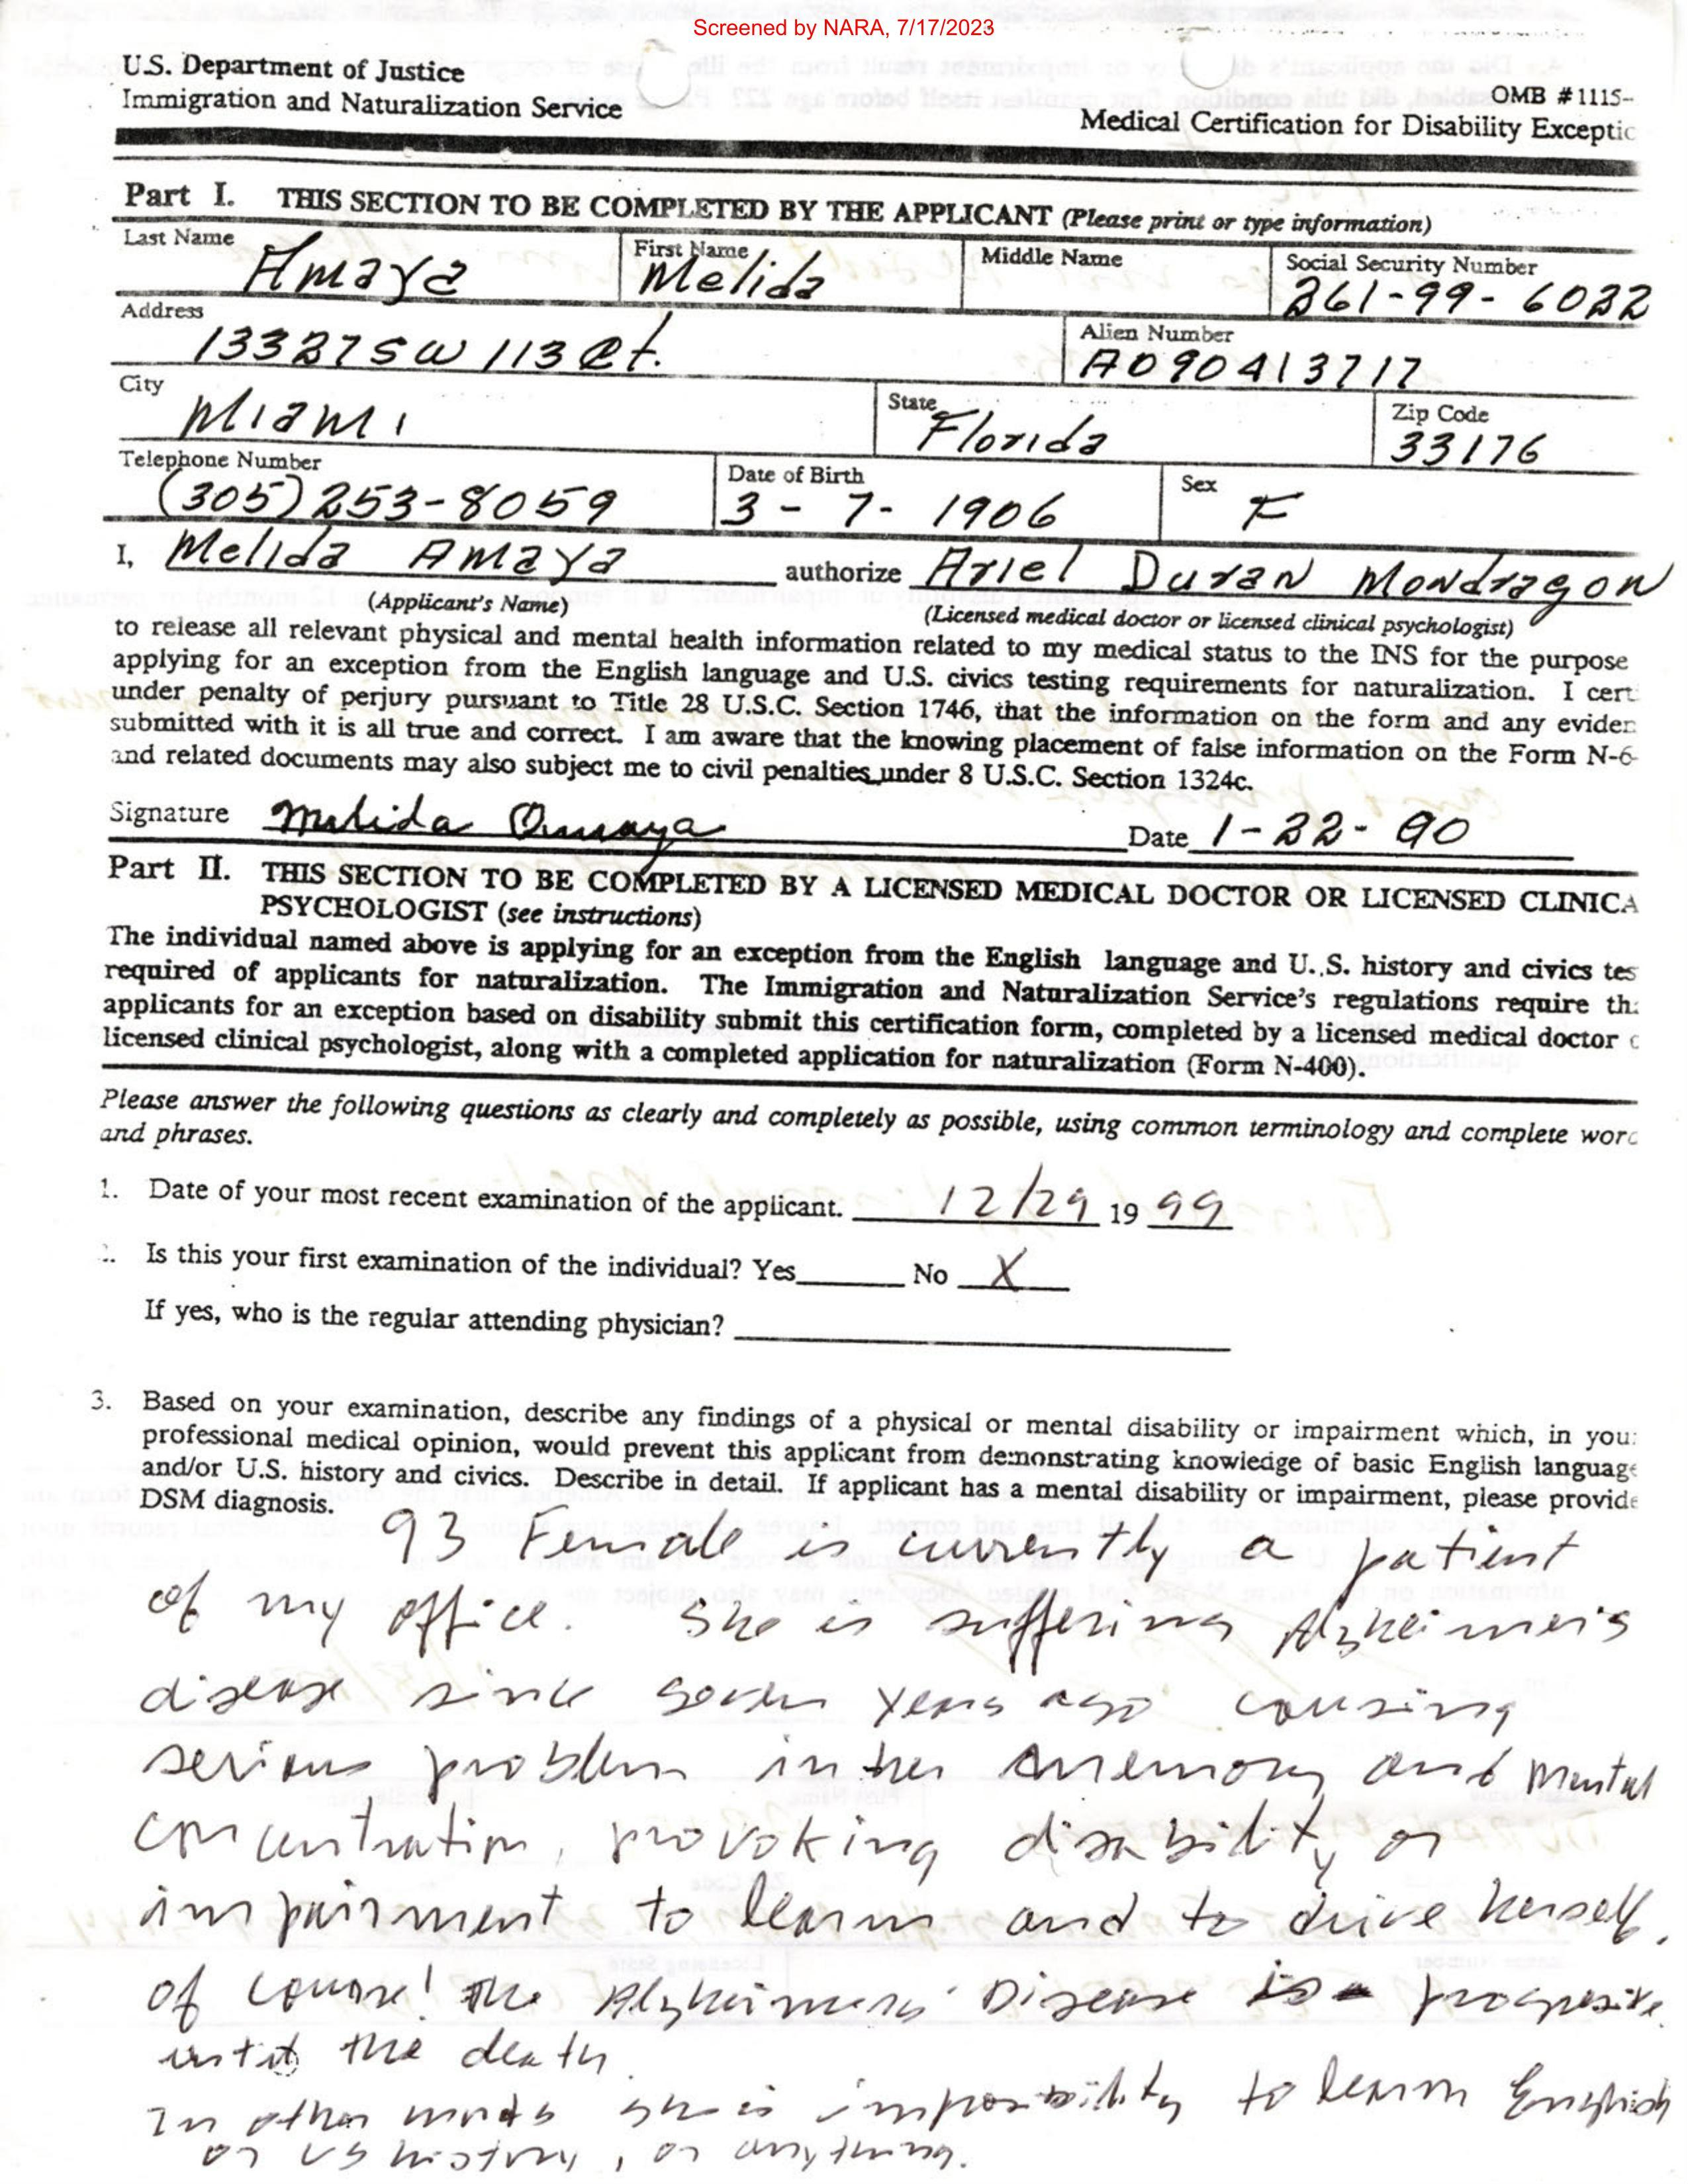 Screened by NARA, 7/17/2023
U.S. Department of Justice
Immigration and Naturalization Service
OMB #1115-
Medical Certification for Disability Exceptic
Part I. THIS SECTION TO BE COMPLETED BY THE APPLICANT (Please print or type information)
Last Name First Name Middle Name Social Security Number
Amaya Melida 261-99-6022
Address Alien Number
13327 SW 113 Ct. A090413717
City State Zip Code
Miami Florida 33176
Telephone Number Date of Birth Sex
(305) 253-8059 3-7-1906 F
I, Melida Amaya authorize Ariel Duran Mondragon
(Applicant's Name) (Licensed medical doctor or licensed clinical psychologist)
to release all relevant physical and mental health information related to my medical status to the INS for the purpose
applying for an exception from the English language and U.S. civics testing requirements for naturalization. I cert
under penalty of perjury pursuant to Title 28 U.S.C. Section 1746, that the information on the form and any eviden
submitted with it is all true and correct. I am aware that the knowing placement of false information on the Form N-6
and related documents may also subject me to civil penalties under 8 U.S.C. Section 1324c.
Signature Melida Amaya Date 1-22-90
Part II. THIS SECTION TO BE COMPLETED BY A LICENSED MEDICAL DOCTOR OR LICENSED CLINICA
PSYCHOLOGIST (see instructions)
The individual named above is applying for an exception from the English language and U.S. history and civics tes
required of applicants for naturalization. The Immigration and Naturalization Service's regulations require th
applicants for an exception based on disability submit this certification form, completed by a licensed medical doctor c
licensed clinical psychologist, along with a completed application for naturalization (Form N-400).
Please answer the following questions as clearly and completely as possible, using common terminology and complete worc
and phrases.
1. Date of your most recent examination of the applicant. 12/29 19 99
2. Is this your first examination of the individual? Yes No X
If yes, who is the regular attending physician?
3. Based on your examination, describe any findings of a physical or mental disability or impairment which, in you
professional medical opinion, would prevent this applicant from demonstrating knowledge of basic English language
and/or U.S. history and civics. Describe in detail. If applicant has a mental disability or impairment, please provide
DSM diagnosis.
93 Female is currently a patient
of my office. She is suffering Alzheimer's
disease since seven years ago causing
serious problem in her memory and mental
concentration, provoking disability or
impairment to learn and to drive herself.
of course! the Alzheimers' Disease is progresive
until the death
In other words she is impossibility to learn English
or US history, or anything.